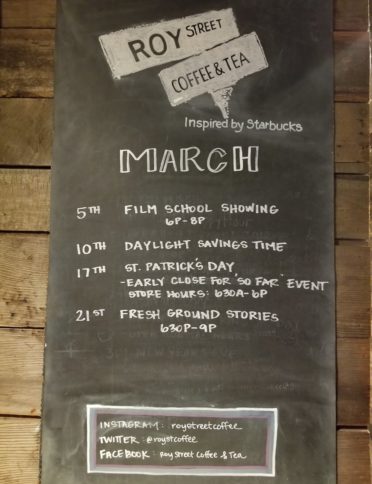 ROY STREET
COFFEE & TEA
Inspired by Starbucks
MARCH
5TH FILM SCHOOL SHOWING
6P-8P
10TH DAYLIGHT SAVINGS TIME
17TH ST. PATRICK'S DAY
-EARLY CLOSE FOR "SO FAR" EVENT
STORE HOURS: 630A-6P
21ST FRESH GROUND STORIES
630P-9P
INSTAGRAM: roystreetcoffee
TWITTER: @roystcoffee
FACEBOOK: Roy Street Coffee & Tea